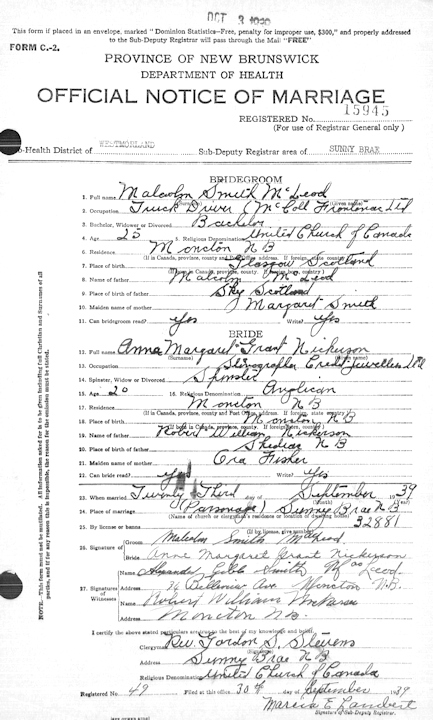 OCT 3 1939
This form if placed in an envelope, marked "Dominion Statistics—Free, penalty for improper use, $300," and properly addressed
to the Sub-Deputy Registrar will pass through the Mail "FREE"
FORM C.-2.
PROVINCE OF NEW BRUNSWICK
DEPARTMENT OF HEALTH
OFFICIAL NOTICE OF MARRIAGE
REGISTERED No. 15945
(For use of Registrar General only)
Sub-Health District of WESTMORLAND Sub-Deputy Registrar area of SUNNY BRAE
BRIDEGROOM
1. Full name Malcolm Smith McLeod
(Surname) (Given names)
2. Occupation Truck Driver McColl Frontenac Ltd
3. Bachelor, Widower or Divorced Bachelor
4. Age 25 5. Religious Denomination United Church of Canada
6. Residence Moncton N B
7. Place of birth Glasgow Scotland
8. Name of father Malcolm McLeod
9. Place of birth of father Sky Scotland
10. Maiden name of mother Margaret Smith
11. Can bridegroom read? Yes Write? Yes
BRIDE
12. Full name Anna Margaret Grant Nickerson
(Surname)
13. Occupation Stenographer Credit Jewellers Ltd
14. Spinster, Widow or Divorced Spinster
15. Age 20 16. Religious Denomination Anglican
17. Residence Moncton N B
18. Place of birth Moncton N B
19. Name of father Robert William Nickerson
20. Place of birth of father Shediac N B
21. Maiden name of mother Ora Fisher
22. Can bride read? Yes Write? Yes
23. When married Twenty Third day of September 1939
(Month) (Year)
24. Place of marriage (Parsonage) Sunny Brae N B
25. By license or banns 32881
26. Signature of Groom Malcolm Smith McLeod
Bride Anne Margaret Grant Nickerson
27. Signature of Witnesses Alexander Smith McLeod
Address 76 Bellevue Ave Moncton N.B.
Robert William
Address Moncton N.B.
I certify the above stated particulars are true to the best of my knowledge and belief.
Clergyman Rev. Gordon S. Stevens
Address Sunny Brae N B
Religious Denomination United Church of Canada
Registered No. 49 Filed at this office 30th day of September 1939
Marcia E Lambert
Signature of Sub-Deputy Registrar.
NOTE. This form must not be mutilated. All information asked for is to be given including full Christian and Surnames of all parties, and if for any reason this is impossible, the reason for the omission must be stated.